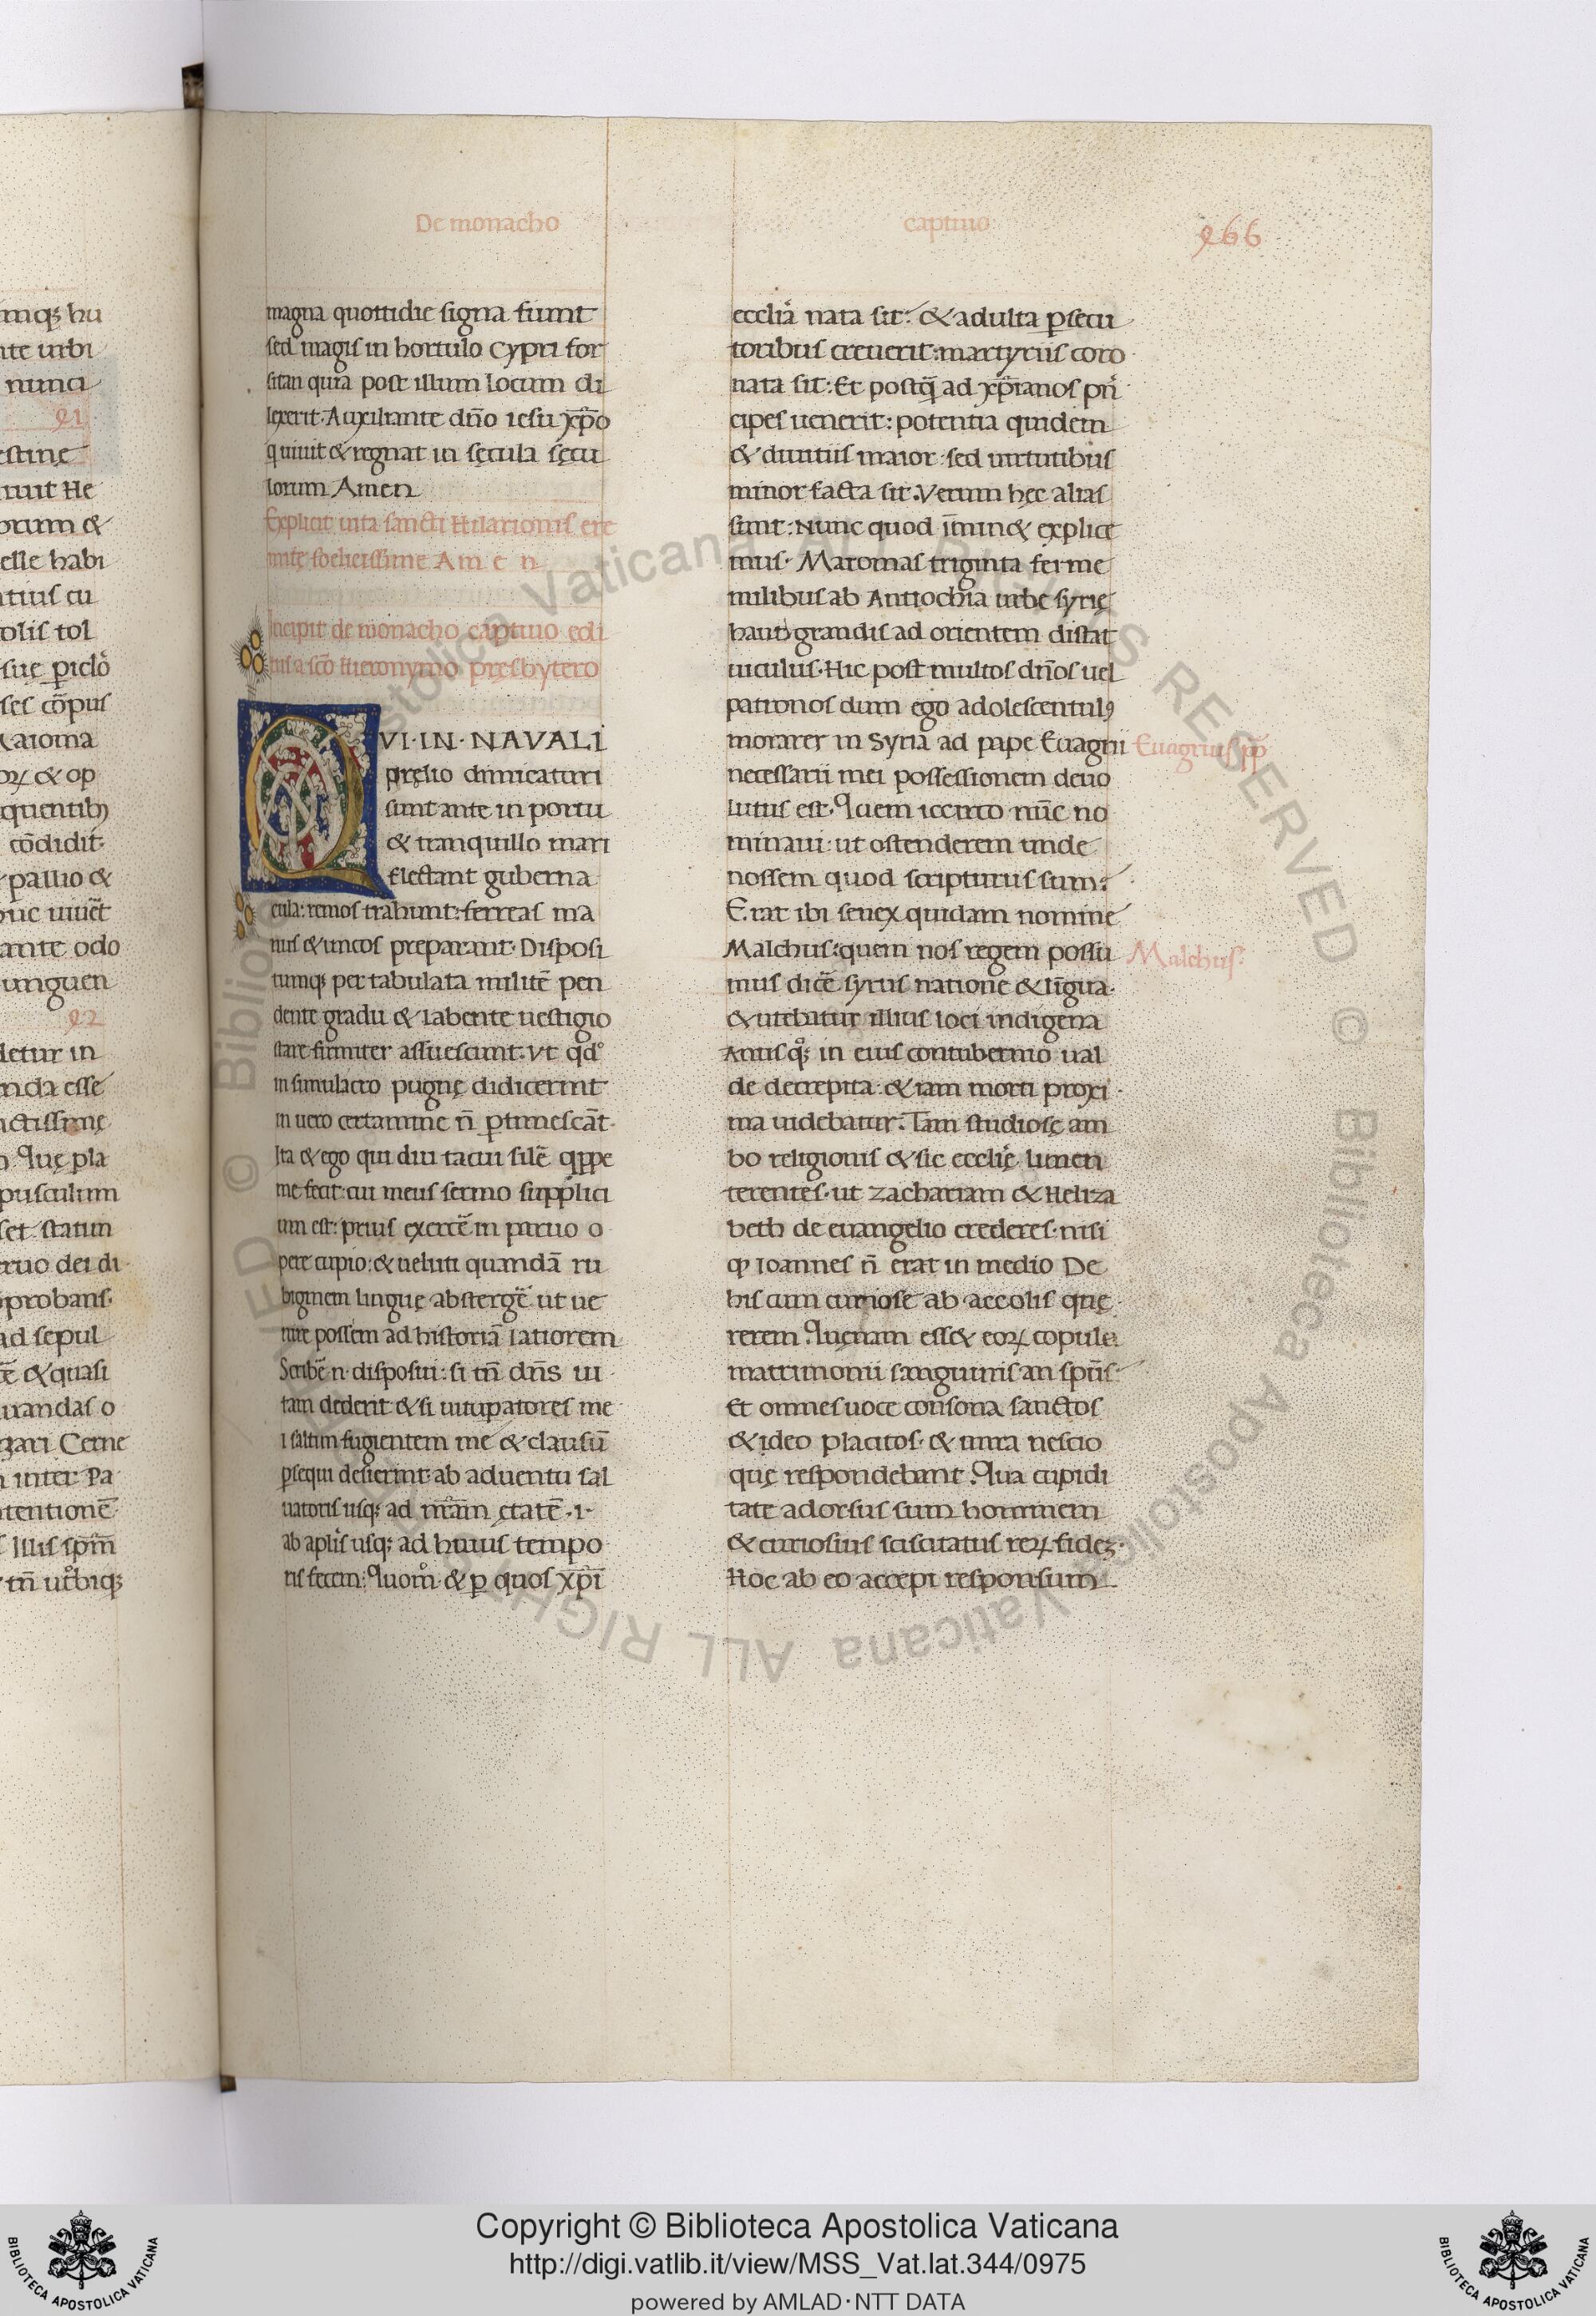 De monacho captiuo 966
magna quottidie signa fiunt
sed magis in hortulo Cypri for
sitan quia post illum locum di
lexerit. Auxiliante dn̄o iesu xp̄o
q uiuit & regnat in sęcula sęcu
lorum Amen
Explicit uita sancti Hilarionis ere
mitę foelicissime A m e n
Incipit de monacho captiuo edi
tus a scō Hieronymo pręsbytero
QVI·IN·NAVALI
pręlio dimicaturi
sunt ante in portu
& tranquillo mari
flectant guberna
cula: remos trahunt: ferreas ma
nus & uncos preparant· Disposi
tumq; per tabulata militē pen
dente gradu & labente uestigio
stare firmiter assuescunt. Vt qd̊
in simulacro pugnę didicerint
in uero certamine n̄ ptimescāt·
Ita & ego qui diu tacui silē qppe
me fecit: cui meus sermo supplici
um est: prius exercē in paruo o
pere cupio: & ueluti quandā ru
biginem linguę abstergē ut ue
nire possem ad historiā latiorem
Scribē n· disposui: si tn̄ dn̄s ui
tam dederit & si uitupatores me
i saltim fugientem me & clausū
psequi desierint· ab aduentu sal
uatoris usq; ad nr̄am ętatē ·i·
ab aplis usq; ad huius tempo
ris fecem: Quom̊ & p quos xp̄i
ecclia nata sit: & adulta psecu
toribus creuerit: martyriis coro
nata sit: Et postq̄ ad xp̄ianos prī
cipes uenerit: potentia quidem
& diuitiis maior: sed uirtutibus
minor facta sit. Verum hęc alias
sunt: Nunc quod īmin& explice
mus· Maronias triginta ferme
milibus ab Antiochia urbe syrię
haud grandis ad orientem distat
uiculus· Hic post multos dn̄os uel
patronos dum ego adolescentulꝰ
morarer in Syria ad pape Euagrii
Euagrius pp̄
necessarii mei possessionem deuo
lutus est· Quem iccirco nūc no
minaui: ut ostenderem unde
nossem quod scripturus sum:
Erat ibi senex quidam nomine
Malchus: quem nos regem possu
Malchus:
mus dicē syrus natione & līgua·
& utebatur illius loci indigena
Anus q̊; in eius contubernio ual
de decrepita: & iam morti proxi
ma uidebatur. Tam studiosę am
bo religionis & sic ecclię limen
terentes· ut Zachariam & Heliza
beth de euangelio crederes· nisi
qp Ioannes n̄ erat in medio De
his cum curiose ab accolis quę
rerem Quęnam ess& eoꝝ copula
matrimonii sanguinis an spūs·
Et omnes uoce consona sanctos
& ideo placitos· & mira nescio
quę respondebant. Qua cupidi
tate adorsus sum hominem
& curiosius sciscitatus reꝝ fidez·
Hoc ab eo accepi responsum
mq; hu
nte urbi
nunci
91
estinę
ruit He
orum &
elle habi
ntius cu
olis tol
suę piclo
ses cōpus
aioma
oꝝ & op
quentibꝰ
cōdidit·
pallio &
uc uiuēt
ante odo
unguen
92
detur in
nda esse
nctissimę
Quę pla
pusculum
set statim
ruo dei di
probans·
ad sepul
& quasi
urandas o
zari Cerne
inter Pa
tentionē
Illis spm̄
tn̄ utrbiq;
Copyright © Biblioteca Apostolica Vaticana
http://digi.vatlib.it/view/MSS_Vat.lat.344/0975
powered by AMLAD·NTT DATA
BIBLIOTECA APOSTOLICA VATICANA
BIBLIOTECA APOSTOLICA VATICANA
© Biblioteca Apostolica Vaticana ALL RIGHTS RESERVED © Biblioteca Apostolica Vaticana ALL RIGHTS RESERVED